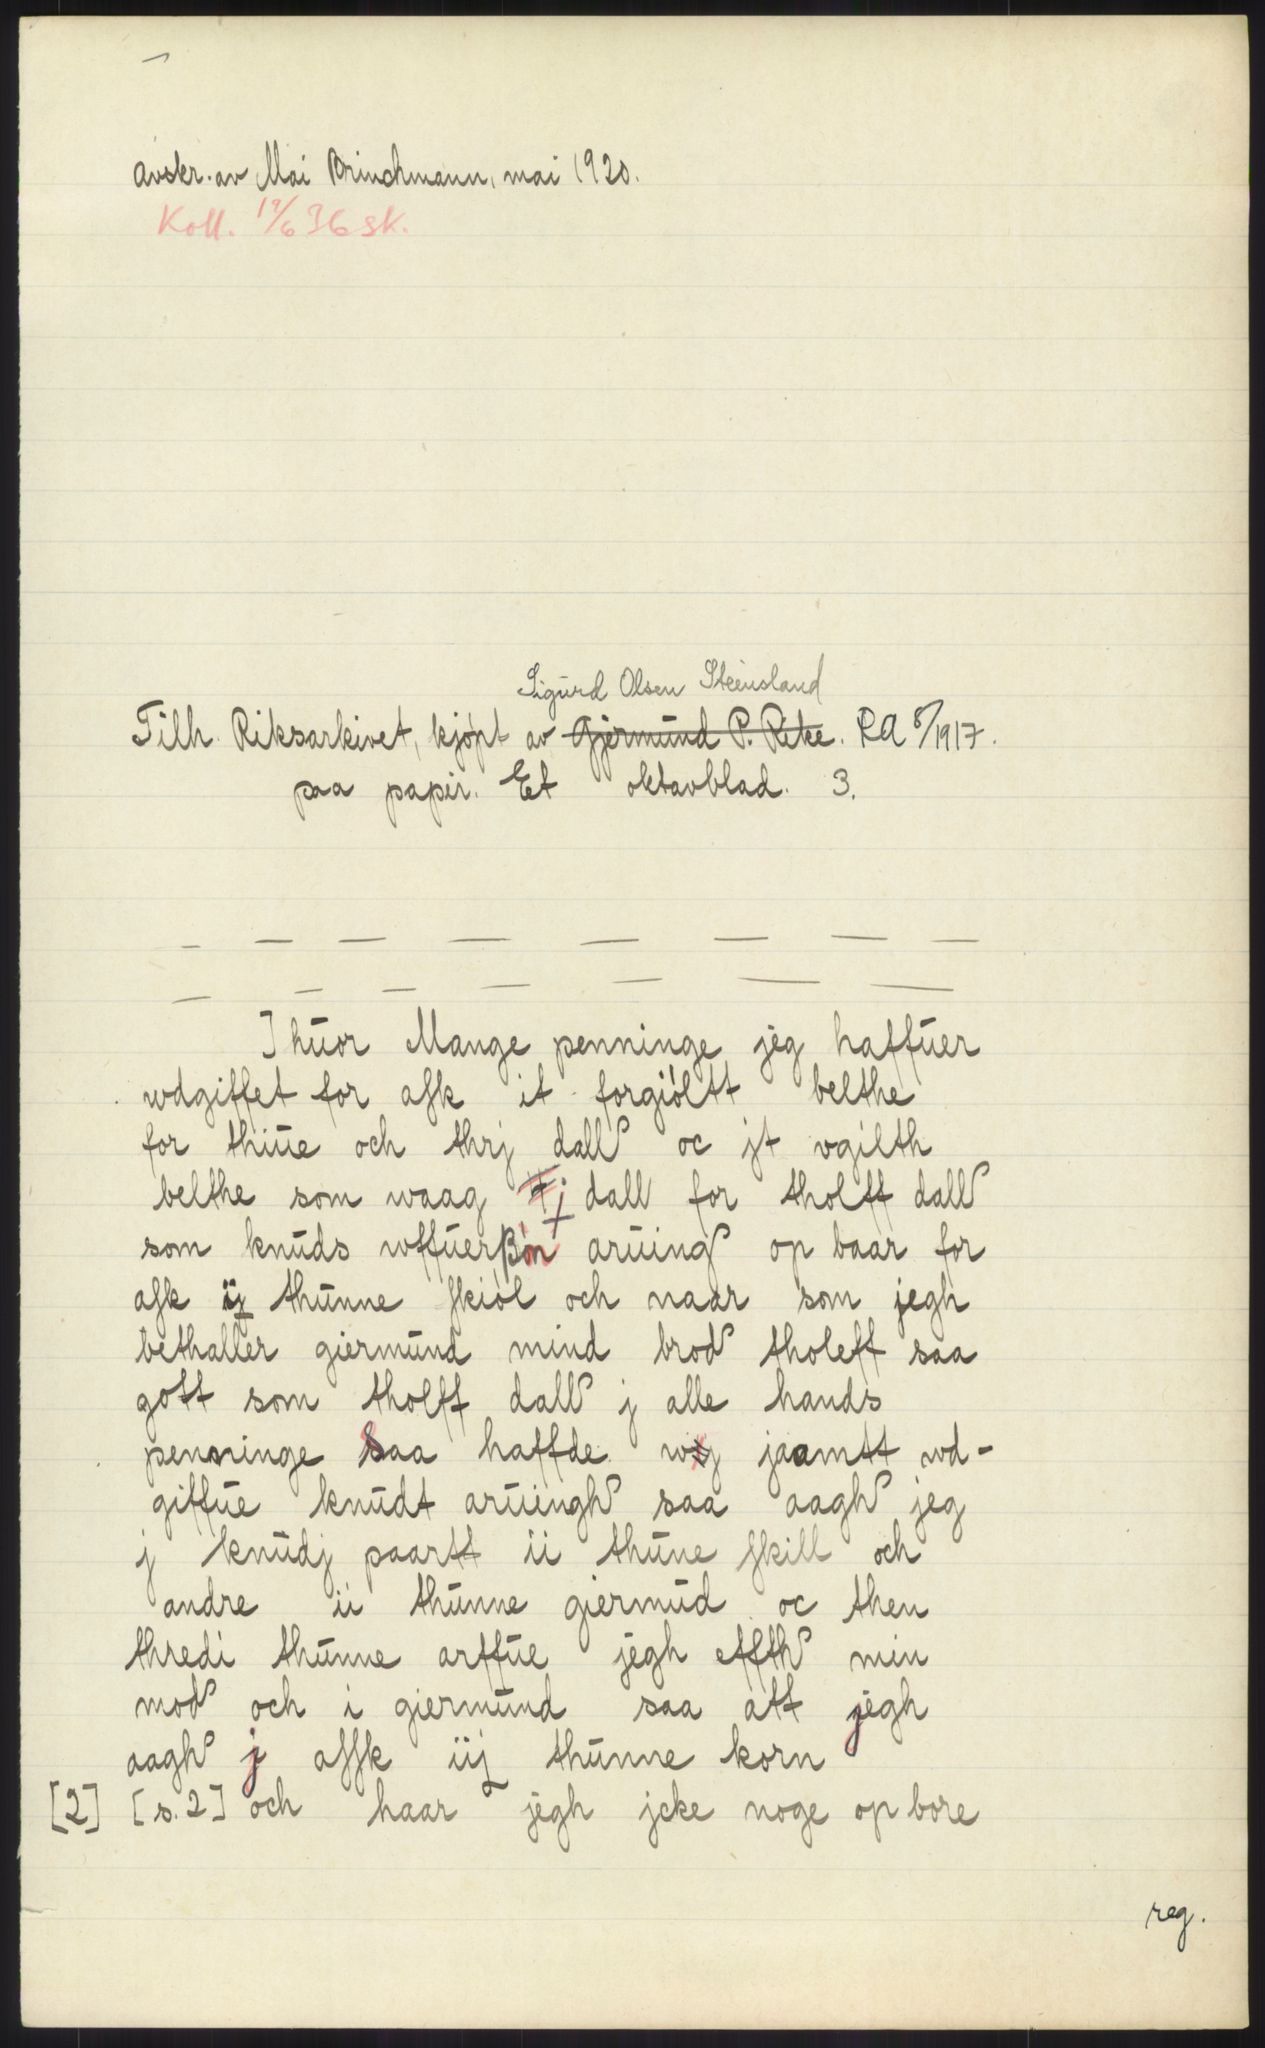 Avskr. av Mai Brinchmann, mai 1920.
Koll. 19/6 36 SK.
Sigurd Olsen Steinsland
Tilh. Riksarkivet, kjøpt av Gjermund P. Reke. RA 8/1917.
paa papir. Et oktavblad. 3.
J huor Mange penninge jeg haffuer
wdgiffet for affk it forgiöltt belthe
for thiue och thrj dall oc jt vgilth
belthe som waag j dall for tholff dall
som knuds wffuerßön aruing op baar for
affk ij thunne skiol och naar som jegh
bethaller giermund mind brod tholeff saa
gott som tholff dall j alle hands
penninge Saa haffde wij jaamtt wd-
giffue knudt aruiingh saa aagh jeg
j knudj paartt ii thune skill och
andre ii thunne giermud oc then
thredi thunne arffue jegh effth min
mod och i giermund saa att jegh
aagh j affk iij thunne korn
[2] [s. 2] och haar jegh jcke noge op bore
reg.